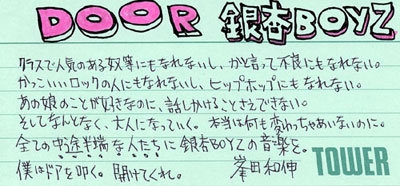 DOOR 銀杏BOYZ
クラスで人気のある奴等にもなれないし、かと言って不良にもなれない。
かっこいいロックの人にもなれないし、ヒップホップにもなれない。
あの娘のことが好きなのに、話しかけることさえできない。
そしてなんとなく、大人になっていく。本当は何も変わっちゃあいないのに。
全ての中途半端な人たちに銀杏BOYZの音楽を。
僕はドアを叩く。開けてくれ。 峯田和伸
TOWER